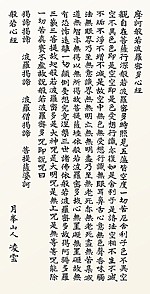 摩訶般若波羅蜜多心經
觀自在菩薩行深般若波羅蜜多時照見五蘊皆空度一切苦厄舍利子色不異空
空不異色色即是空空即是色受想行識亦復如是舍利子是諸法空相不生不滅
不垢不淨不增不減是故空中無色無受想行識無眼耳鼻舌身意無色聲香味觸
法無眼界乃至無意識界無無明亦無無明盡乃至無老死亦無老死盡無苦集滅
道無智亦無得以無所得故菩提薩埵依般若波羅蜜多故心無罣礙無罣礙故無
有恐怖遠離一切顛倒夢想究竟涅槃三世諸佛依般若波羅蜜多故得阿耨多羅
三藐三菩提故知般若波羅蜜多是大神咒是大明咒是無上咒是無等等咒能除
一切苦真實不虛故說般若波羅蜜多咒即說咒曰
揭諦揭諦 波羅揭諦 波羅僧揭諦 菩提薩摩訶
般若心經 月峯山人 凌雲